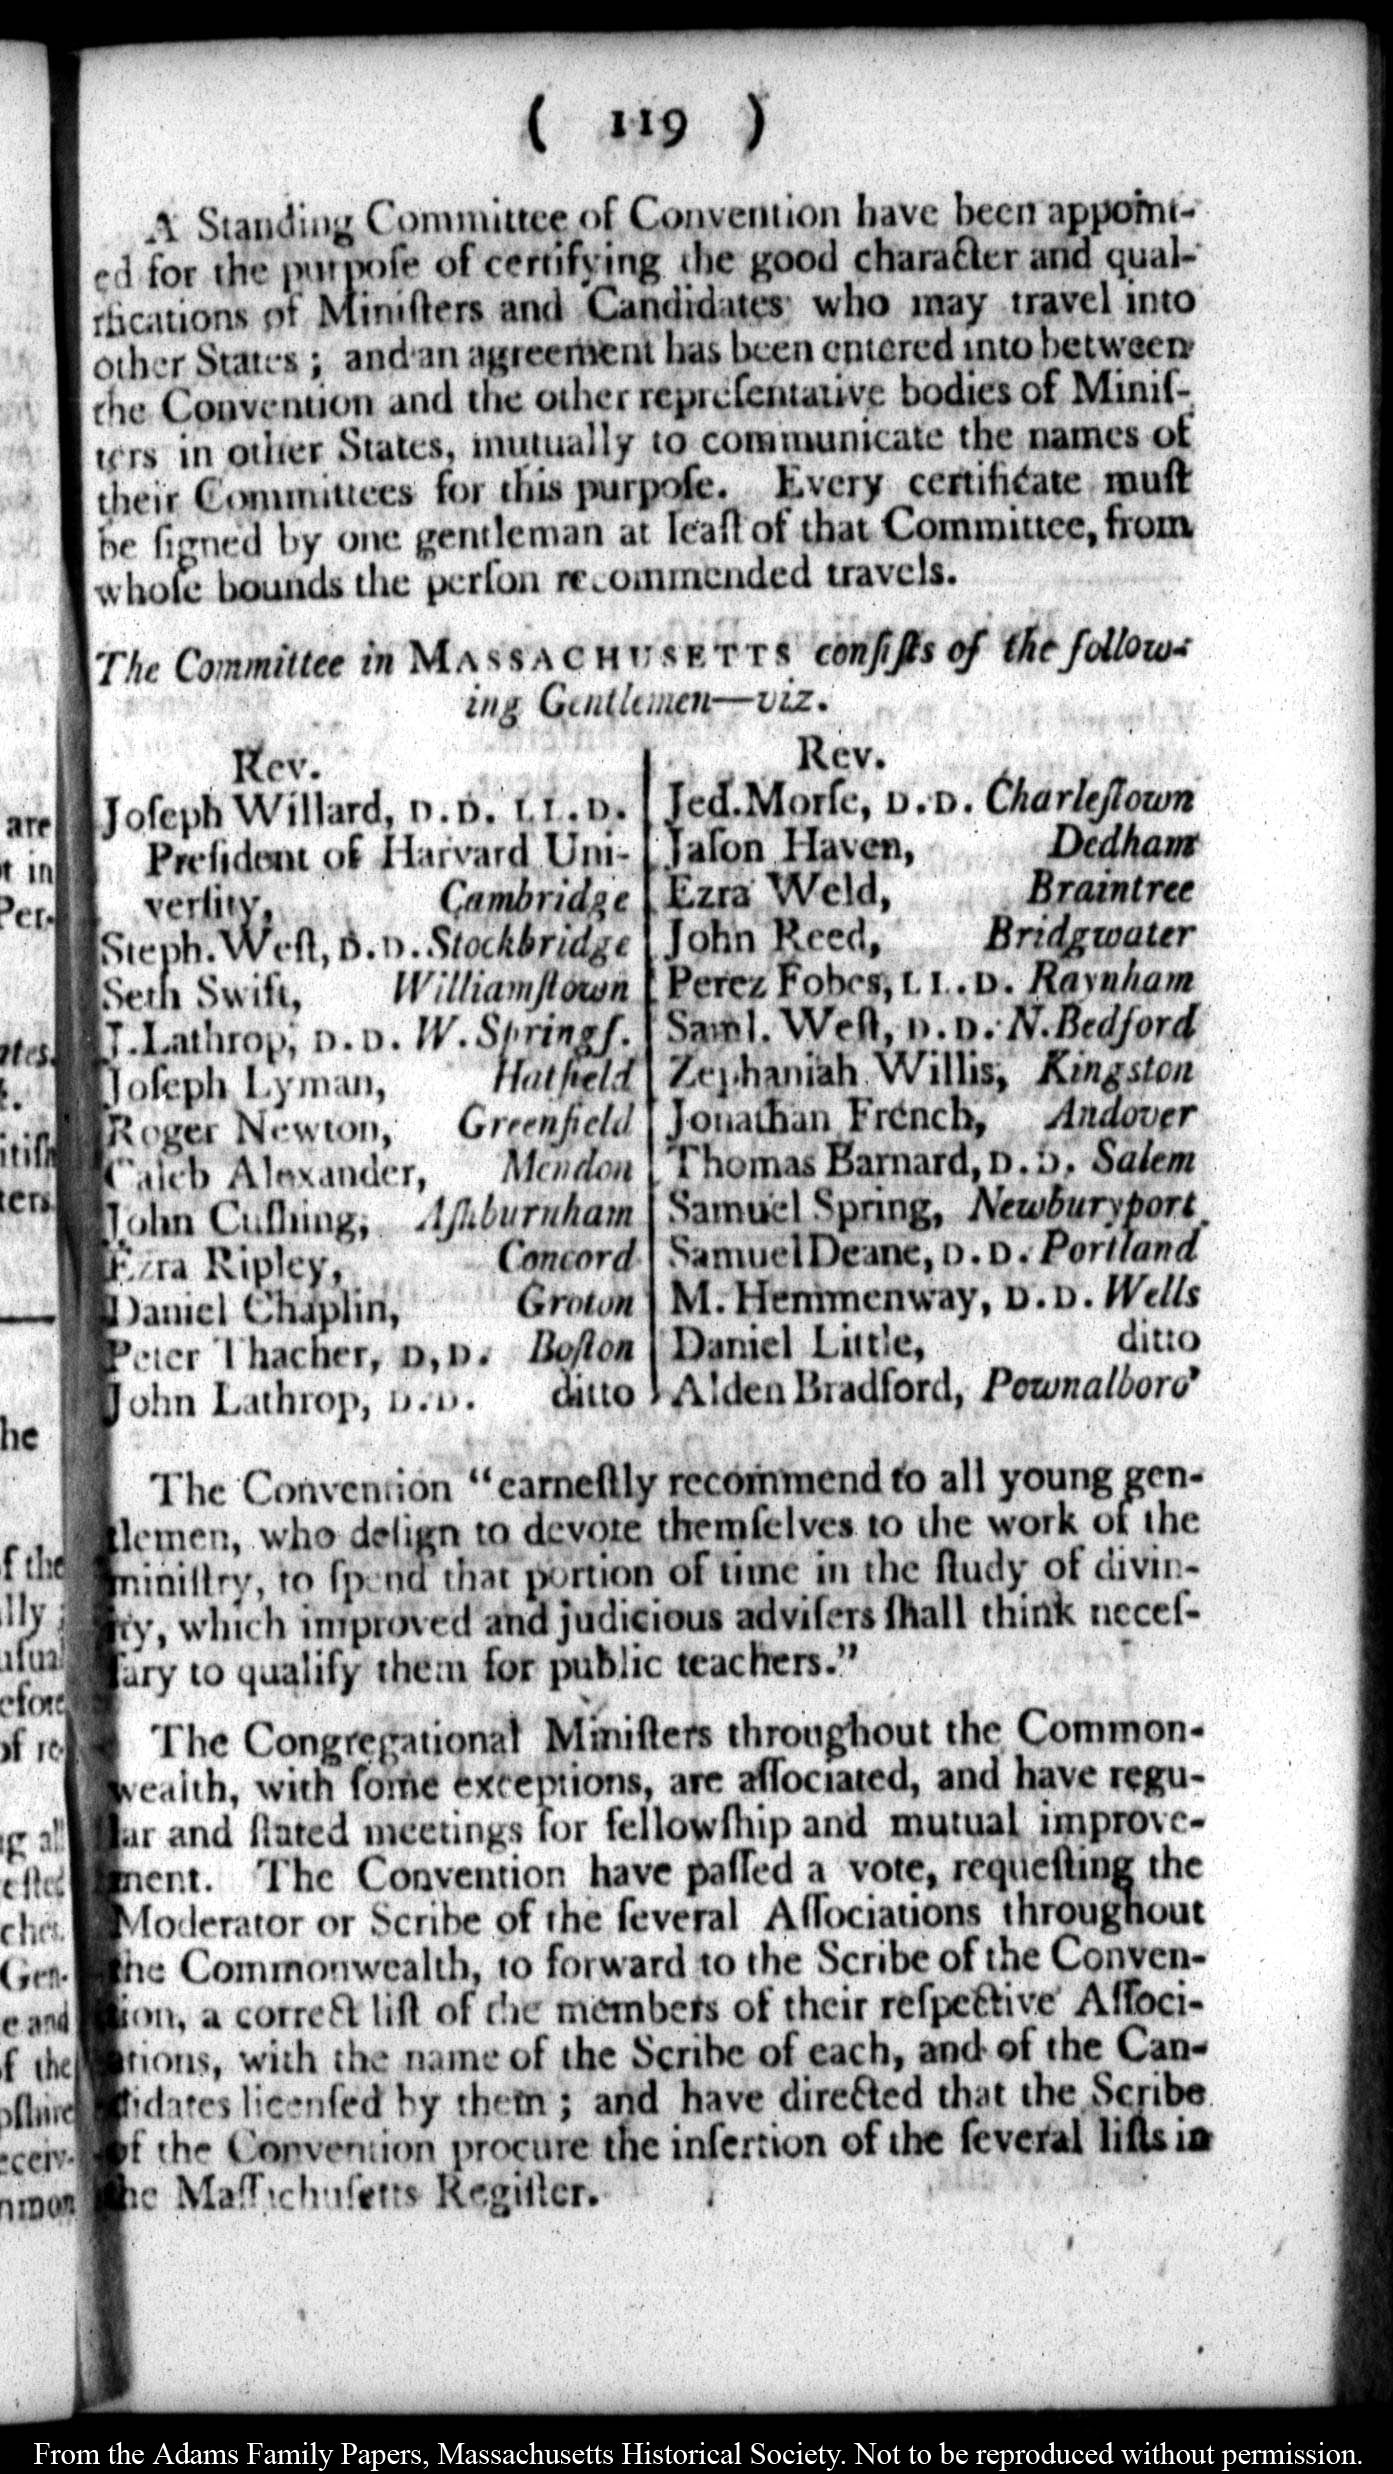 ( 119 )
A Standing Committee of Convention have been appoint-
ed for the purpoſe of certifying the good character and qual-
ifications of Miniſters and Candidates who may travel into
other States ; and an agreement has been entered into between
the Convention and the other repreſentative bodies of Miniſ-
ters in other States, mutually to communicate the names of
their Committees for this purpoſe. Every certificate muſt
be ſigned by one gentleman at leaſt of that Committee, from
whoſe bounds the perſon recommended travels.
The Committee in MASSACHUSETTS conſiſts of the follow-
ing Gentlemen—viz.
Rev.
Joſeph Willard, D. D. LL. D.
Preſident of Harvard Uni-
verſity, Cambridge
Steph. Weſt, D. D. Stockbridge
Seth Swift, Williamſtown
J. Lathrop, D. D. W. Springſ.
Joſeph Lyman, Hatfield
Roger Newton, Greenfield
Caleb Alexander, Mendon
John Cuſhing, Aſhburnham
Ezra Ripley, Concord
Daniel Chaplin, Groton
Peter Thacher, D, D. Boſton
John Lathrop, D. D. ditto
Rev.
Jed. Morſe, D. D. Charleſtown
Jaſon Haven, Dedham
Ezra Weld, Braintree
John Reed, Bridgwater
Perez Fobes, LL. D. Raynham
Saml. Weſt, D. D. N. Bedford
Zephaniah Willis, Kingston
Jonathan French, Andover
Thomas Barnard, D. D. Salem
Samuel Spring, Newburyport
Samuel Deane, D. D. Portland
M. Hemmenway, D. D. Wells
Daniel Little, ditto
Alden Bradford, Pownalboro'
The Convention “earneſtly recommend to all young gen-
tlemen, who deſign to devote themſelves to the work of the
miniſtry, to ſpend that portion of time in the ſtudy of divin-
ity, which improved and judicious adviſers ſhall think neceſ-
ſary to qualify them for public teachers.”
The Congregational Miniſters throughout the Common-
wealth, with ſome exceptions, are aſſociated, and have regu-
lar and ſtated meetings for fellowſhip and mutual improve-
ment. The Convention have paſſed a vote, requeſting the
Moderator or Scribe of the ſeveral Aſſociations throughout
the Commonwealth, to forward to the Scribe of the Conven-
tion, a correct liſt of the members of their reſpective Aſſoci-
ations, with the name of the Scribe of each, and of the Can-
didates licenſed by them ; and have directed that the Scribe
of the Convention procure the inſertion of the ſeveral liſts in
the Maſſachuſetts Regiſter.
From the Adams Family Papers, Massachusetts Historical Society. Not to be reproduced without permission.